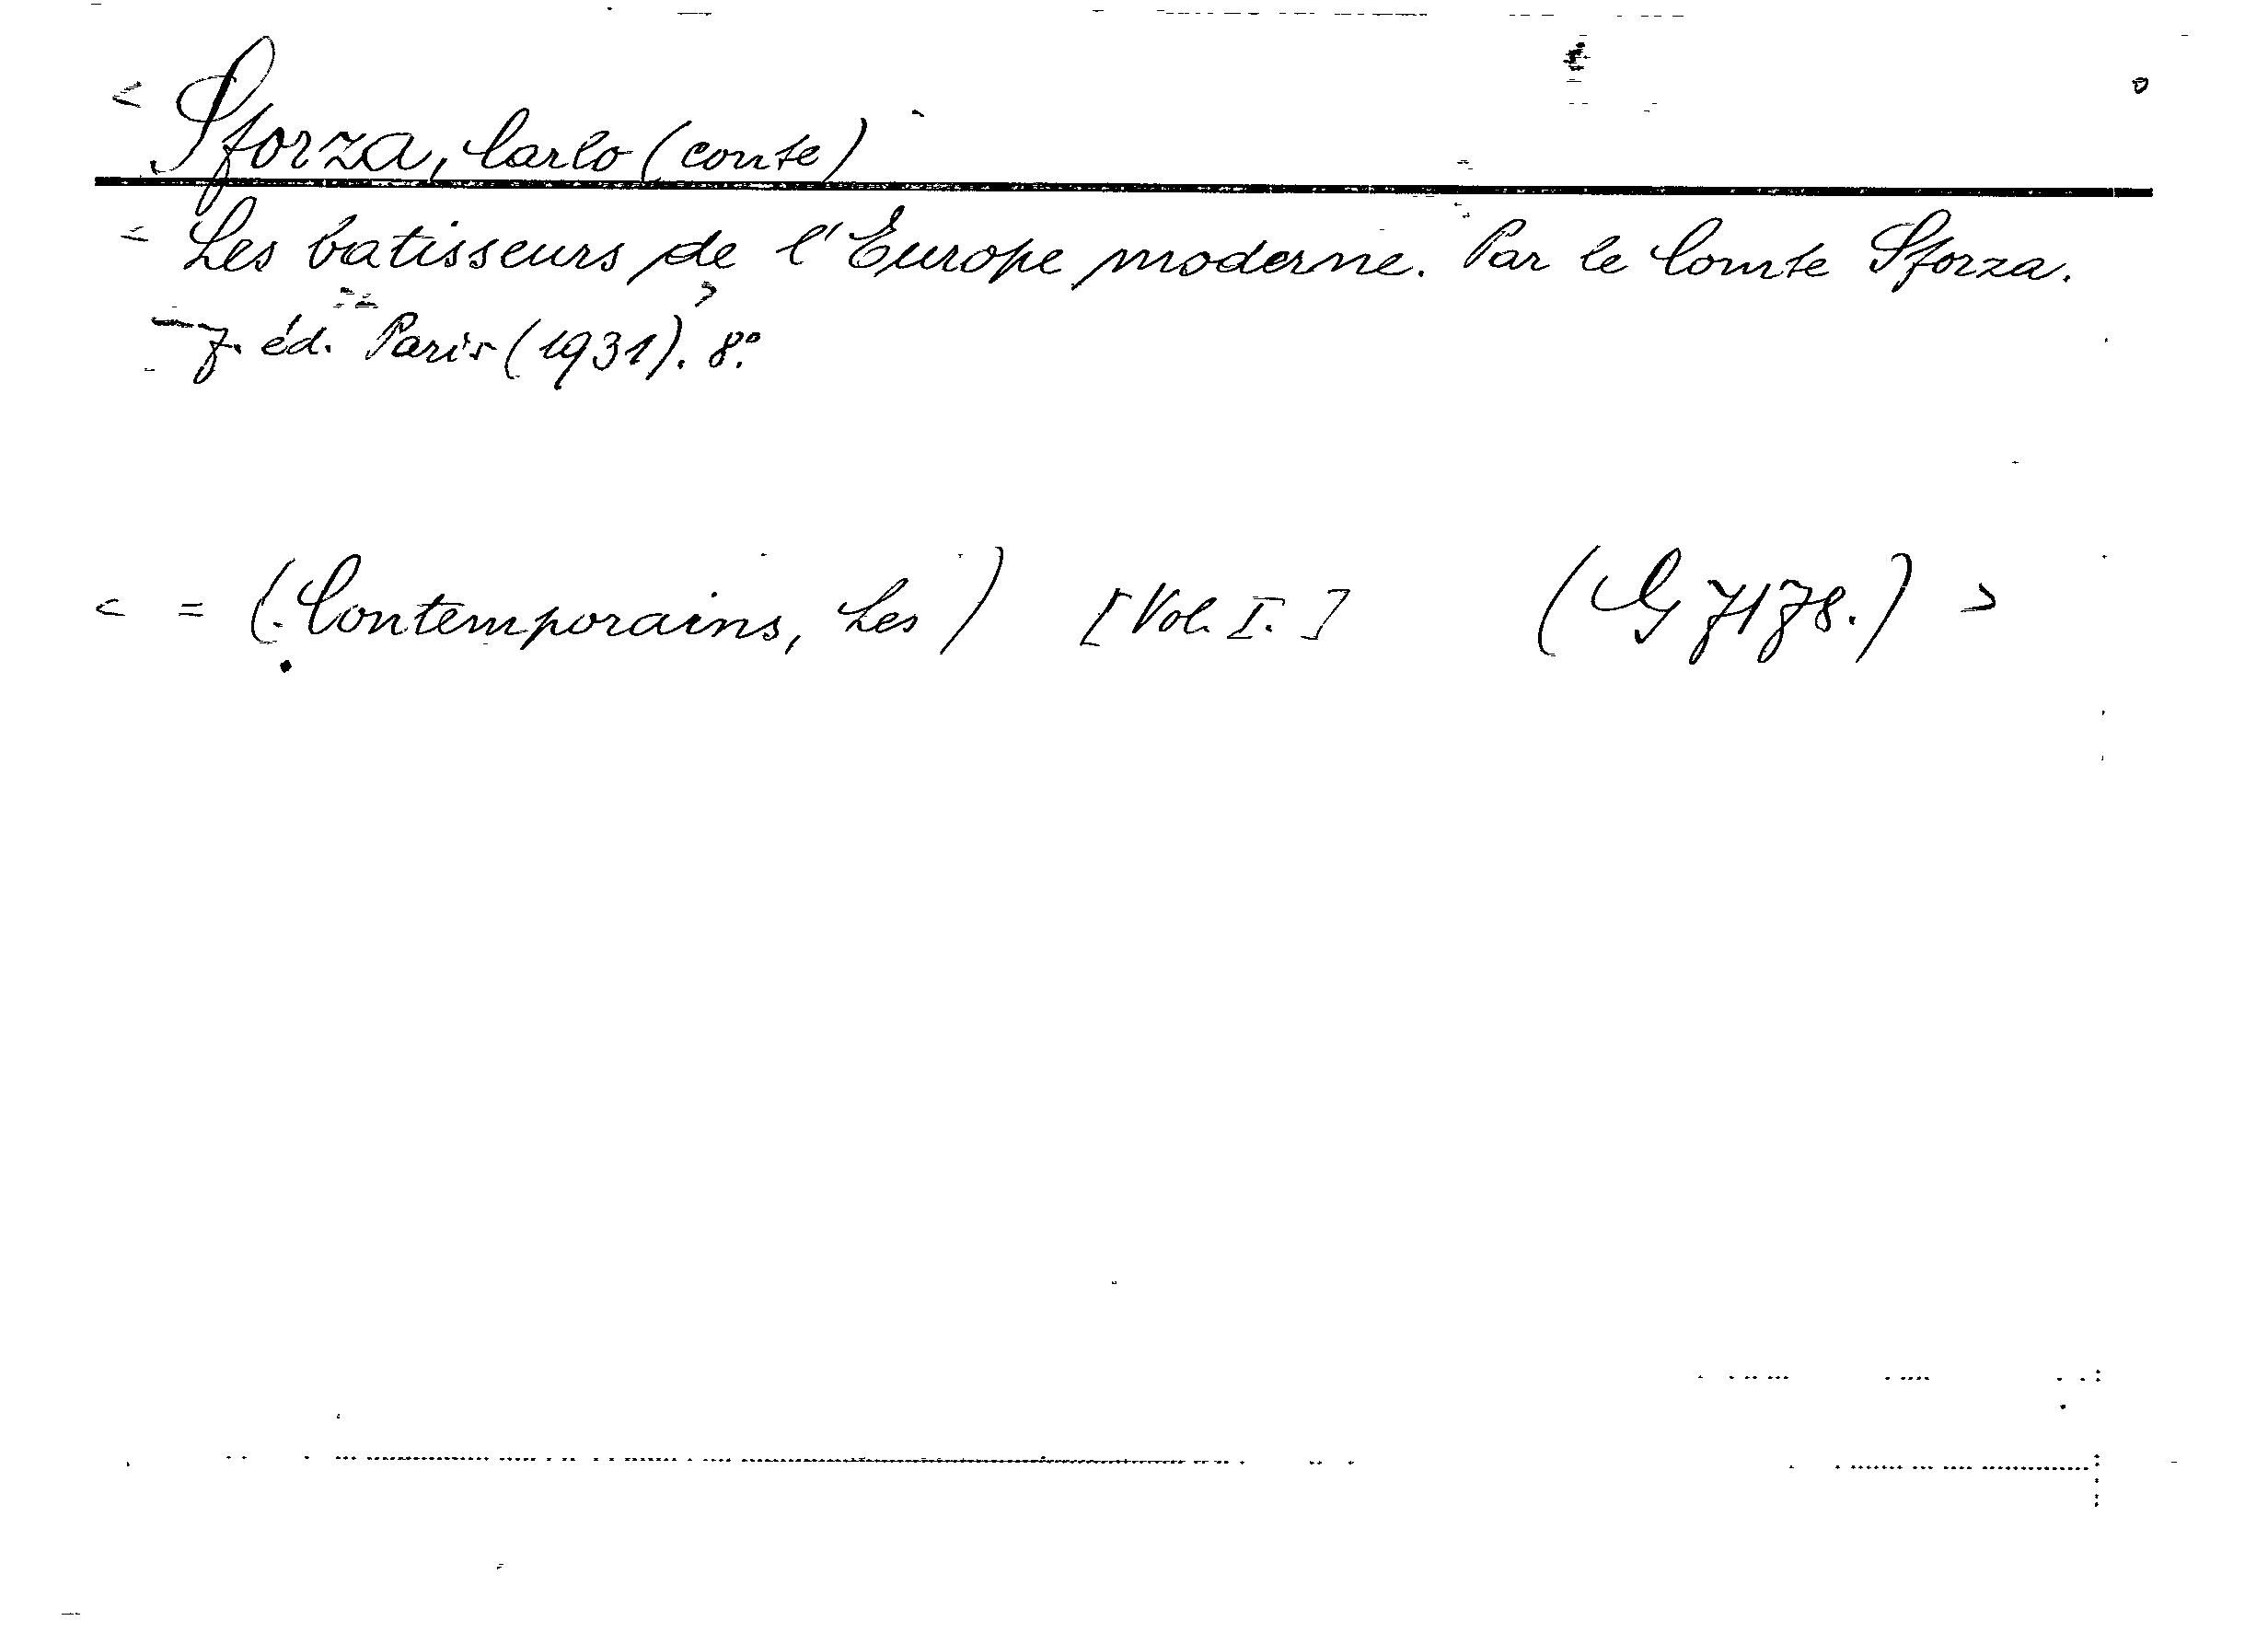 Sforza, Carlo (conte)
Les batisseurs de l'Europe moderne. Par le Comte Sforza.
7. éd. Paris (1931). 8°.
= (Contemporains, Les) [Vol. I.] (G 7178.)